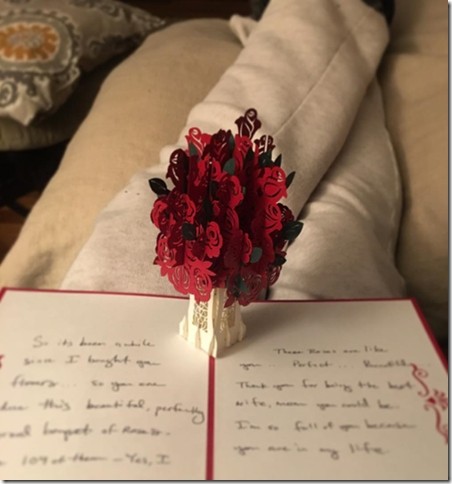 So its been awhile
since I bought you
flowers... so you are
this beautiful, perfectly
bouquet of Roses.
109 of them - Yes, I
These Roses are like
you... Perfect... Beautiful
Thank you for being the best
wife, mom you could be.
I'm so full of you because
you are in my life.